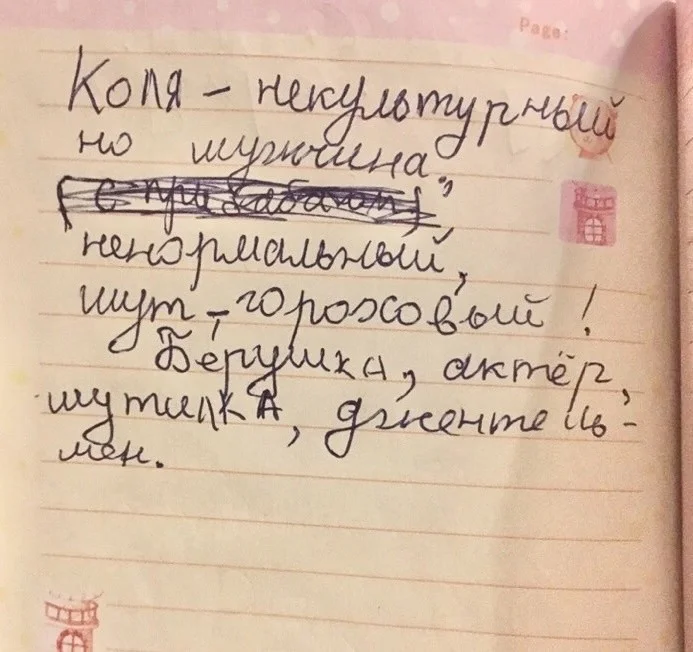 Page:
Коля – некультурный
но мужчина"
ненормальный,
шут-гороховый!
Берушка, актёр,
шутилкА, джентель-
мен.